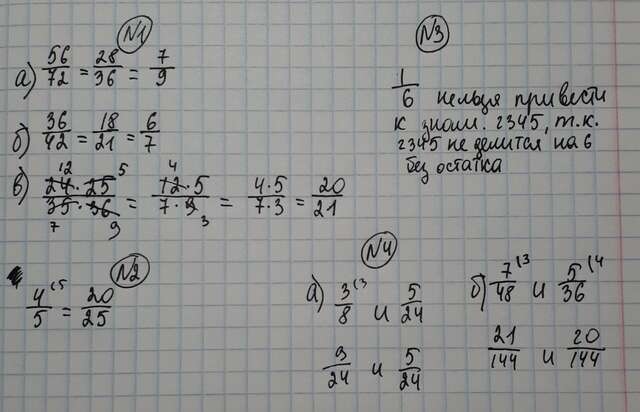 №1
а) 56/72 = 28/36 = 7/9
б) 36/42 = 18/21 = 6/7
в) 24·25/35·36 = 12·5/7·9 = 4·5/7·3 = 20/21
12 5 4
7 9 3
№2
4/5 (5 = 20/25
№3
1/6 нельзя привести
к знам. 2345, т.к.
2345 не делится на 6
без остатка
№4
а) 3/8 (3 и 5/24
9/24 и 5/24
б) 7/48 (3 и 5/36 (4
21/144 и 20/144